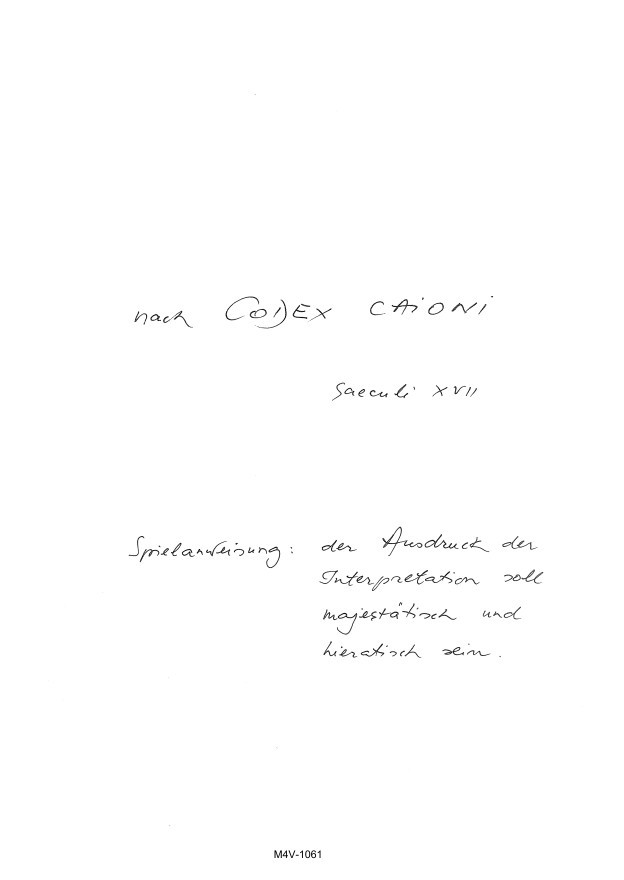 nach CODEX CAiONi
Saeculi XVII
Spielanweisung: der Ausdruck der
Interpretation soll
majestätisch und
hieratisch sein.
M4V-1061